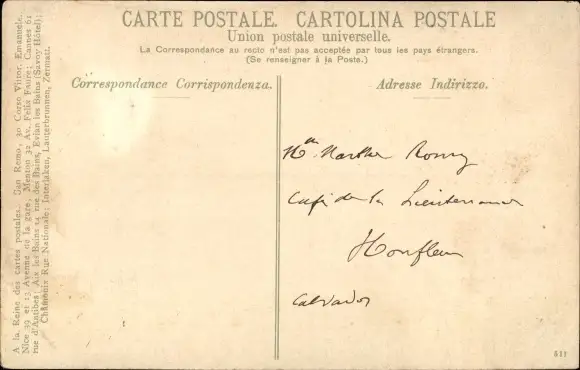 CARTE POSTALE. CARTOLINA POSTALE
Union postale universelle.
La Correspondance au recto n'est pas acceptée par tous les pays étrangers.
(Se renseigner à la Poste.)
Correspondance Corrispondenza.
Adresse Indirizzo.
Marthe
Café de la Lieutenance
Honfleur
Calvados
A la Reine des cartes postales. San Remo, 30 Corso Vittor. Emanuele.
Nice 39 et 13 Avenue de la gare, Menton 32 Av. Félix Faure; Cannes 61
rue d'Antibes; Aix les Bains 14 rue des Bains, Evian les Bains (Savoy Hôtel);
Chamonix Rue Nationale; Interlaken, Lauterbrunnen, Zermatt.
511